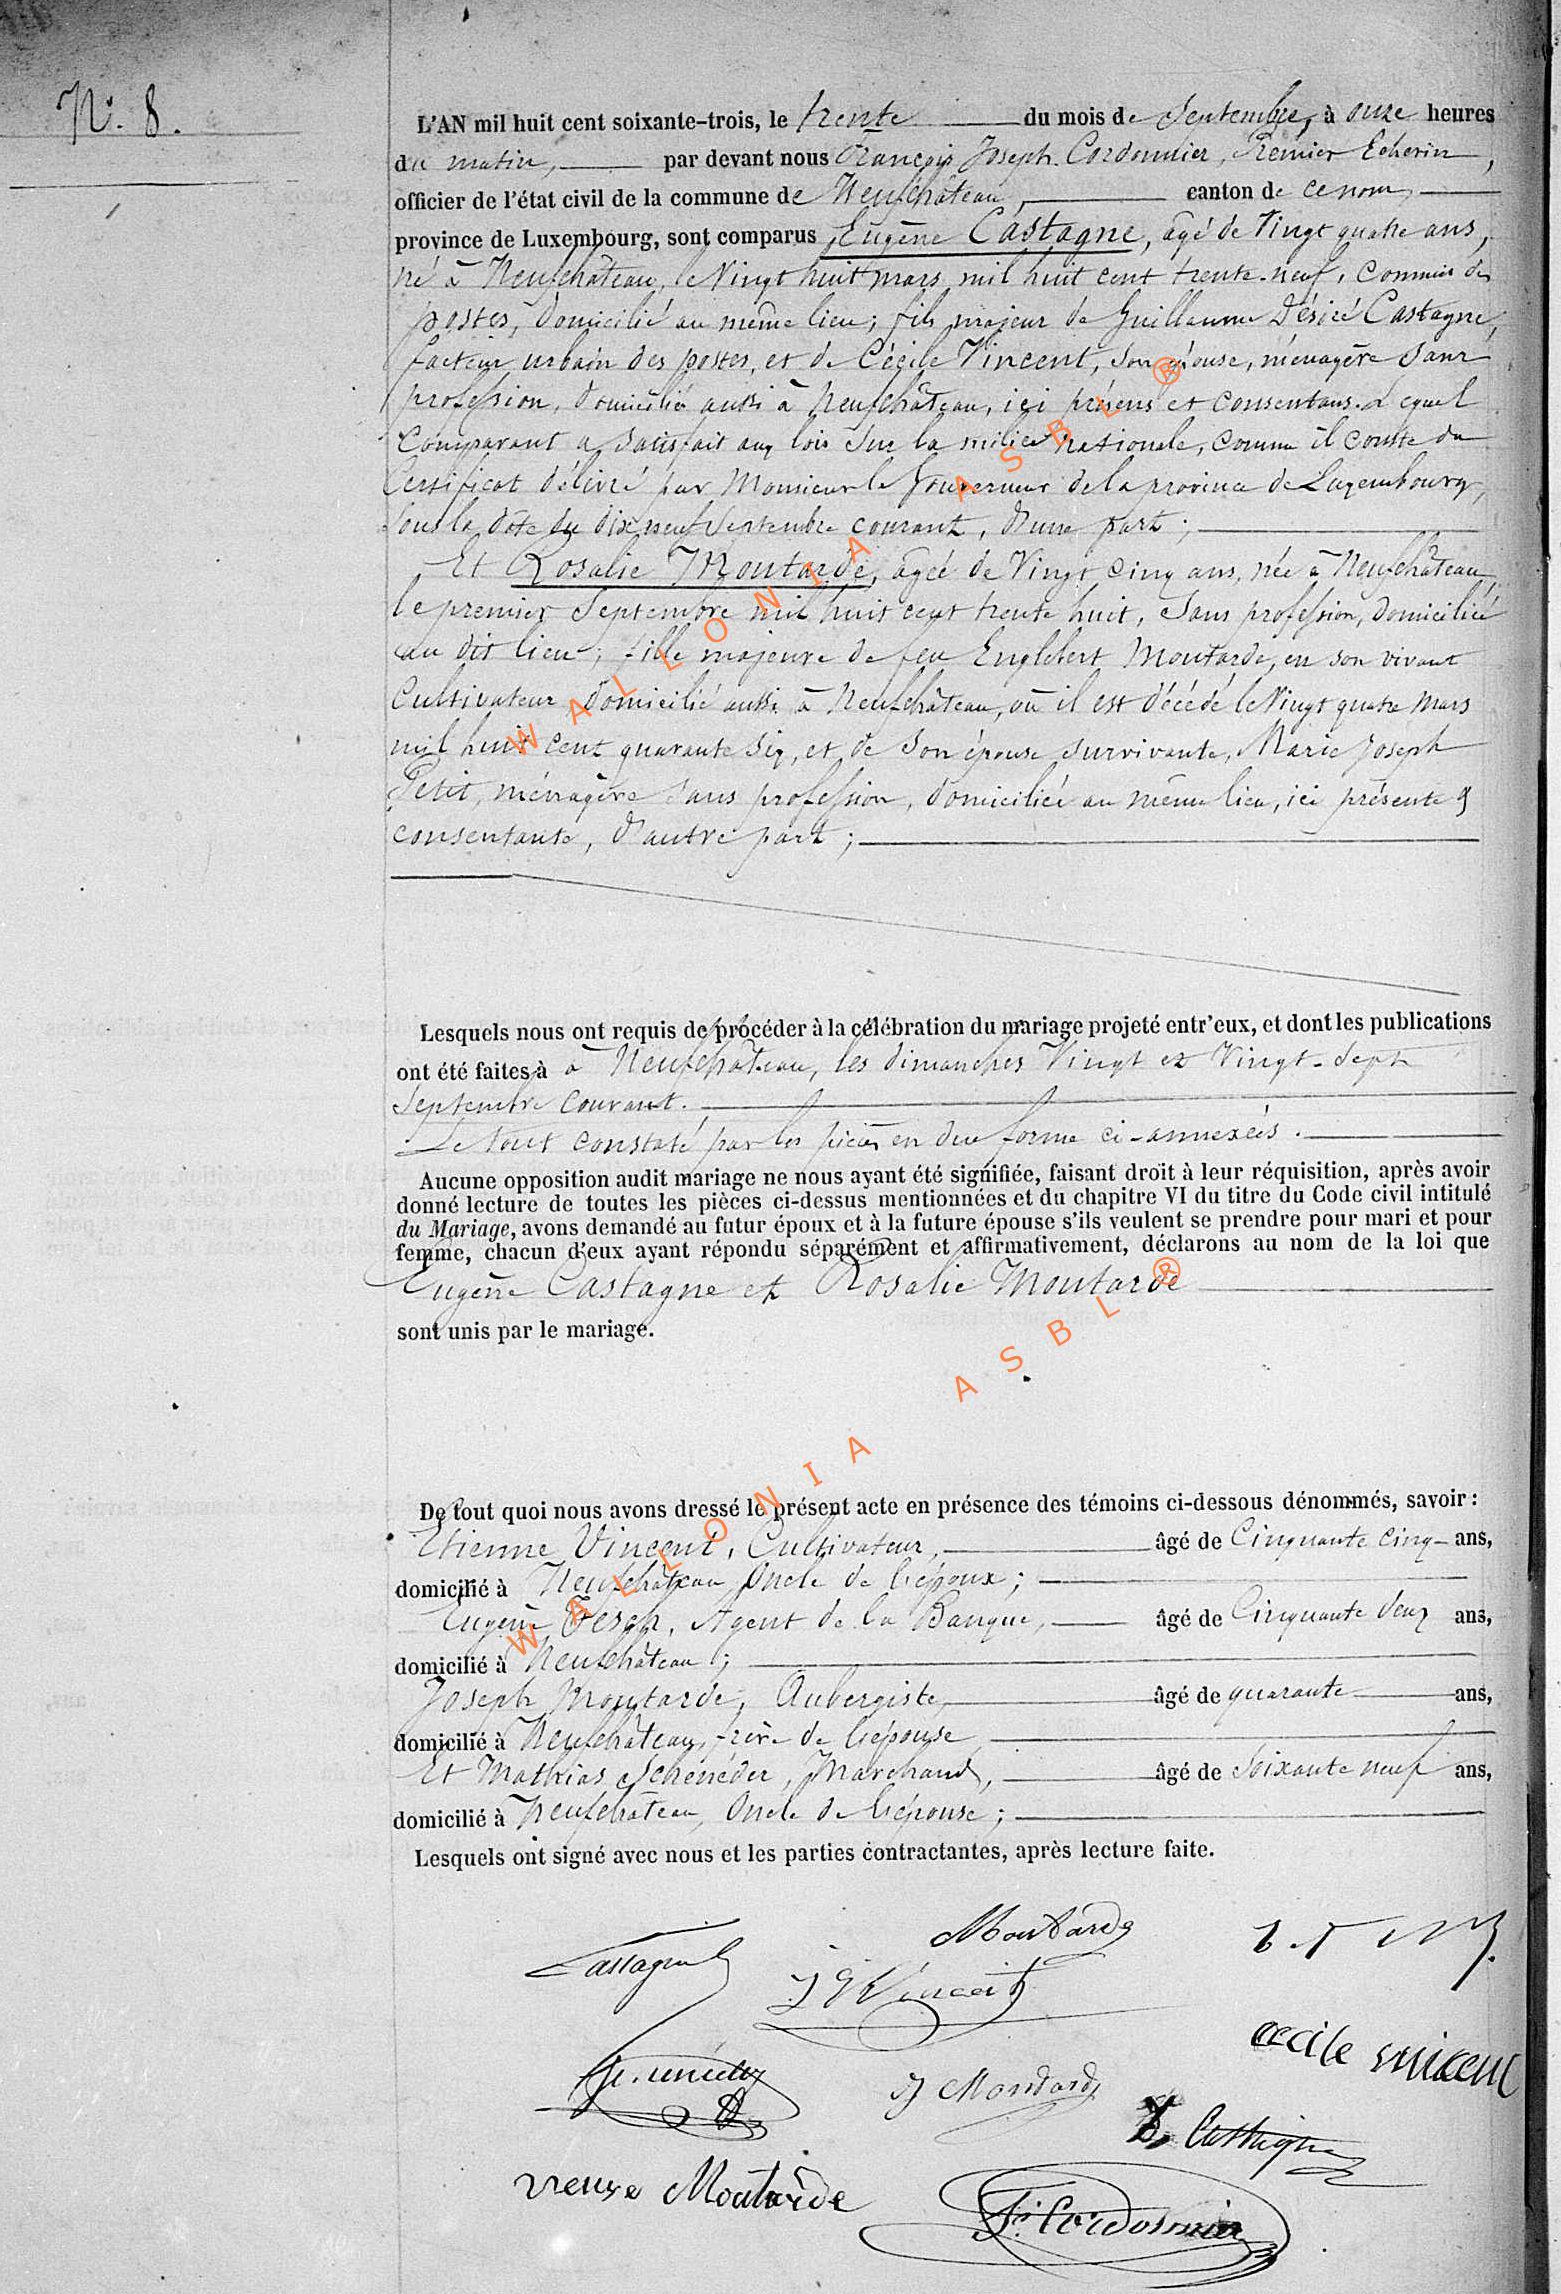 N° 8.
L'AN mil huit cent soixante-trois, le trente du mois de Septembre, à onze heures
du matin, par devant nous François Joseph Cordonnier, Premier Echevin,
officier de l'état civil de la commune de Neufchâteau, canton de ce nom,
province de Luxembourg, sont comparus Eugène Castagne, âgé de Vingt quatre ans,
né à Neufchâteau, le Vingt huit mars mil huit cent trente-neuf, commis des
postes, domicilié au même lieu; fils majeur de Guillaume Désiré Castagne,
facteur urbain des postes, et de Cécile Vincent, son épouse, ménagère sans
profession, domiciliés aussi à Neufchâteau, ici présens et consentans. Lequel
Comparant a satisfait aux lois sur la milice nationale, comme il conste du
Certificat délivré par Monsieur le Gouverneur de la province de Luxembourg,
sous la date du dix neuf Septembre courant, d'une part;
Et Rosalie Moutarde, âgée de Vingt cinq ans, née à Neufchâteau,
le premier Septembre mil huit cent trente huit, sans profession, domiciliée
au dit lieu; fille majeure de feu Englebert Moutarde, en son vivant
Cultivateur domicilié aussi à Neufchâteau, où il est décédé le Vingt quatre Mars
mil huit cent quarante six, et de son épouse survivante, Marie Joseph
Petit, ménagère sans profession, domiciliée au même lieu, ici présente &
consentante, d'autre part;
Lesquels nous ont requis de procéder à la célébration du mariage projeté entr'eux, et dont les publications
ont été faites à à Neufchâteau, les dimanches Vingt et Vingt-Sept
Septembre Courant.
Le tout constaté par les pièces en due forme ci-annexées.
Aucune opposition audit mariage ne nous ayant été signifiée, faisant droit à leur réquisition, après avoir
donné lecture de toutes les pièces ci-dessus mentionnées et du chapitre VI du titre du Code civil intitulé
du Mariage, avons demandé au futur époux et à la future épouse s'ils veulent se prendre pour mari et pour
femme, chacun d'eux ayant répondu séparément et affirmativement, déclarons au nom de la loi que
Eugène Castagne et Rosalie Moutarde
sont unis par le mariage.
De tout quoi nous avons dressé le présent acte en présence des témoins ci-dessous dénommés, savoir:
Etienne Vincent, Cultivateur, âgé de Cinquante cinq ans,
domicilié à Neufchâteau, Oncle de l'époux;
Eugène Tesch, Agent de la Banque, âgé de Cinquante deux ans,
domicilié à Neufchâteau;
Joseph Moutarde, Aubergiste, âgé de quarante ans,
domicilié à Neufchâteau, frère de l'épouse,
Et Mathias Scheneder, Marchand, âgé de Soixante neuf ans,
domicilié à Neufchâteau, Oncle de l'épouse;
Lesquels ont signé avec nous et les parties contractantes, après lecture faite.
Castagne Moutarde
Vincent
cecile vincent
J Moutarde
Castagne
veuve Moutarde
Cordonnier
WALLONIA ASBL ®
WALLONIA ASBL ®